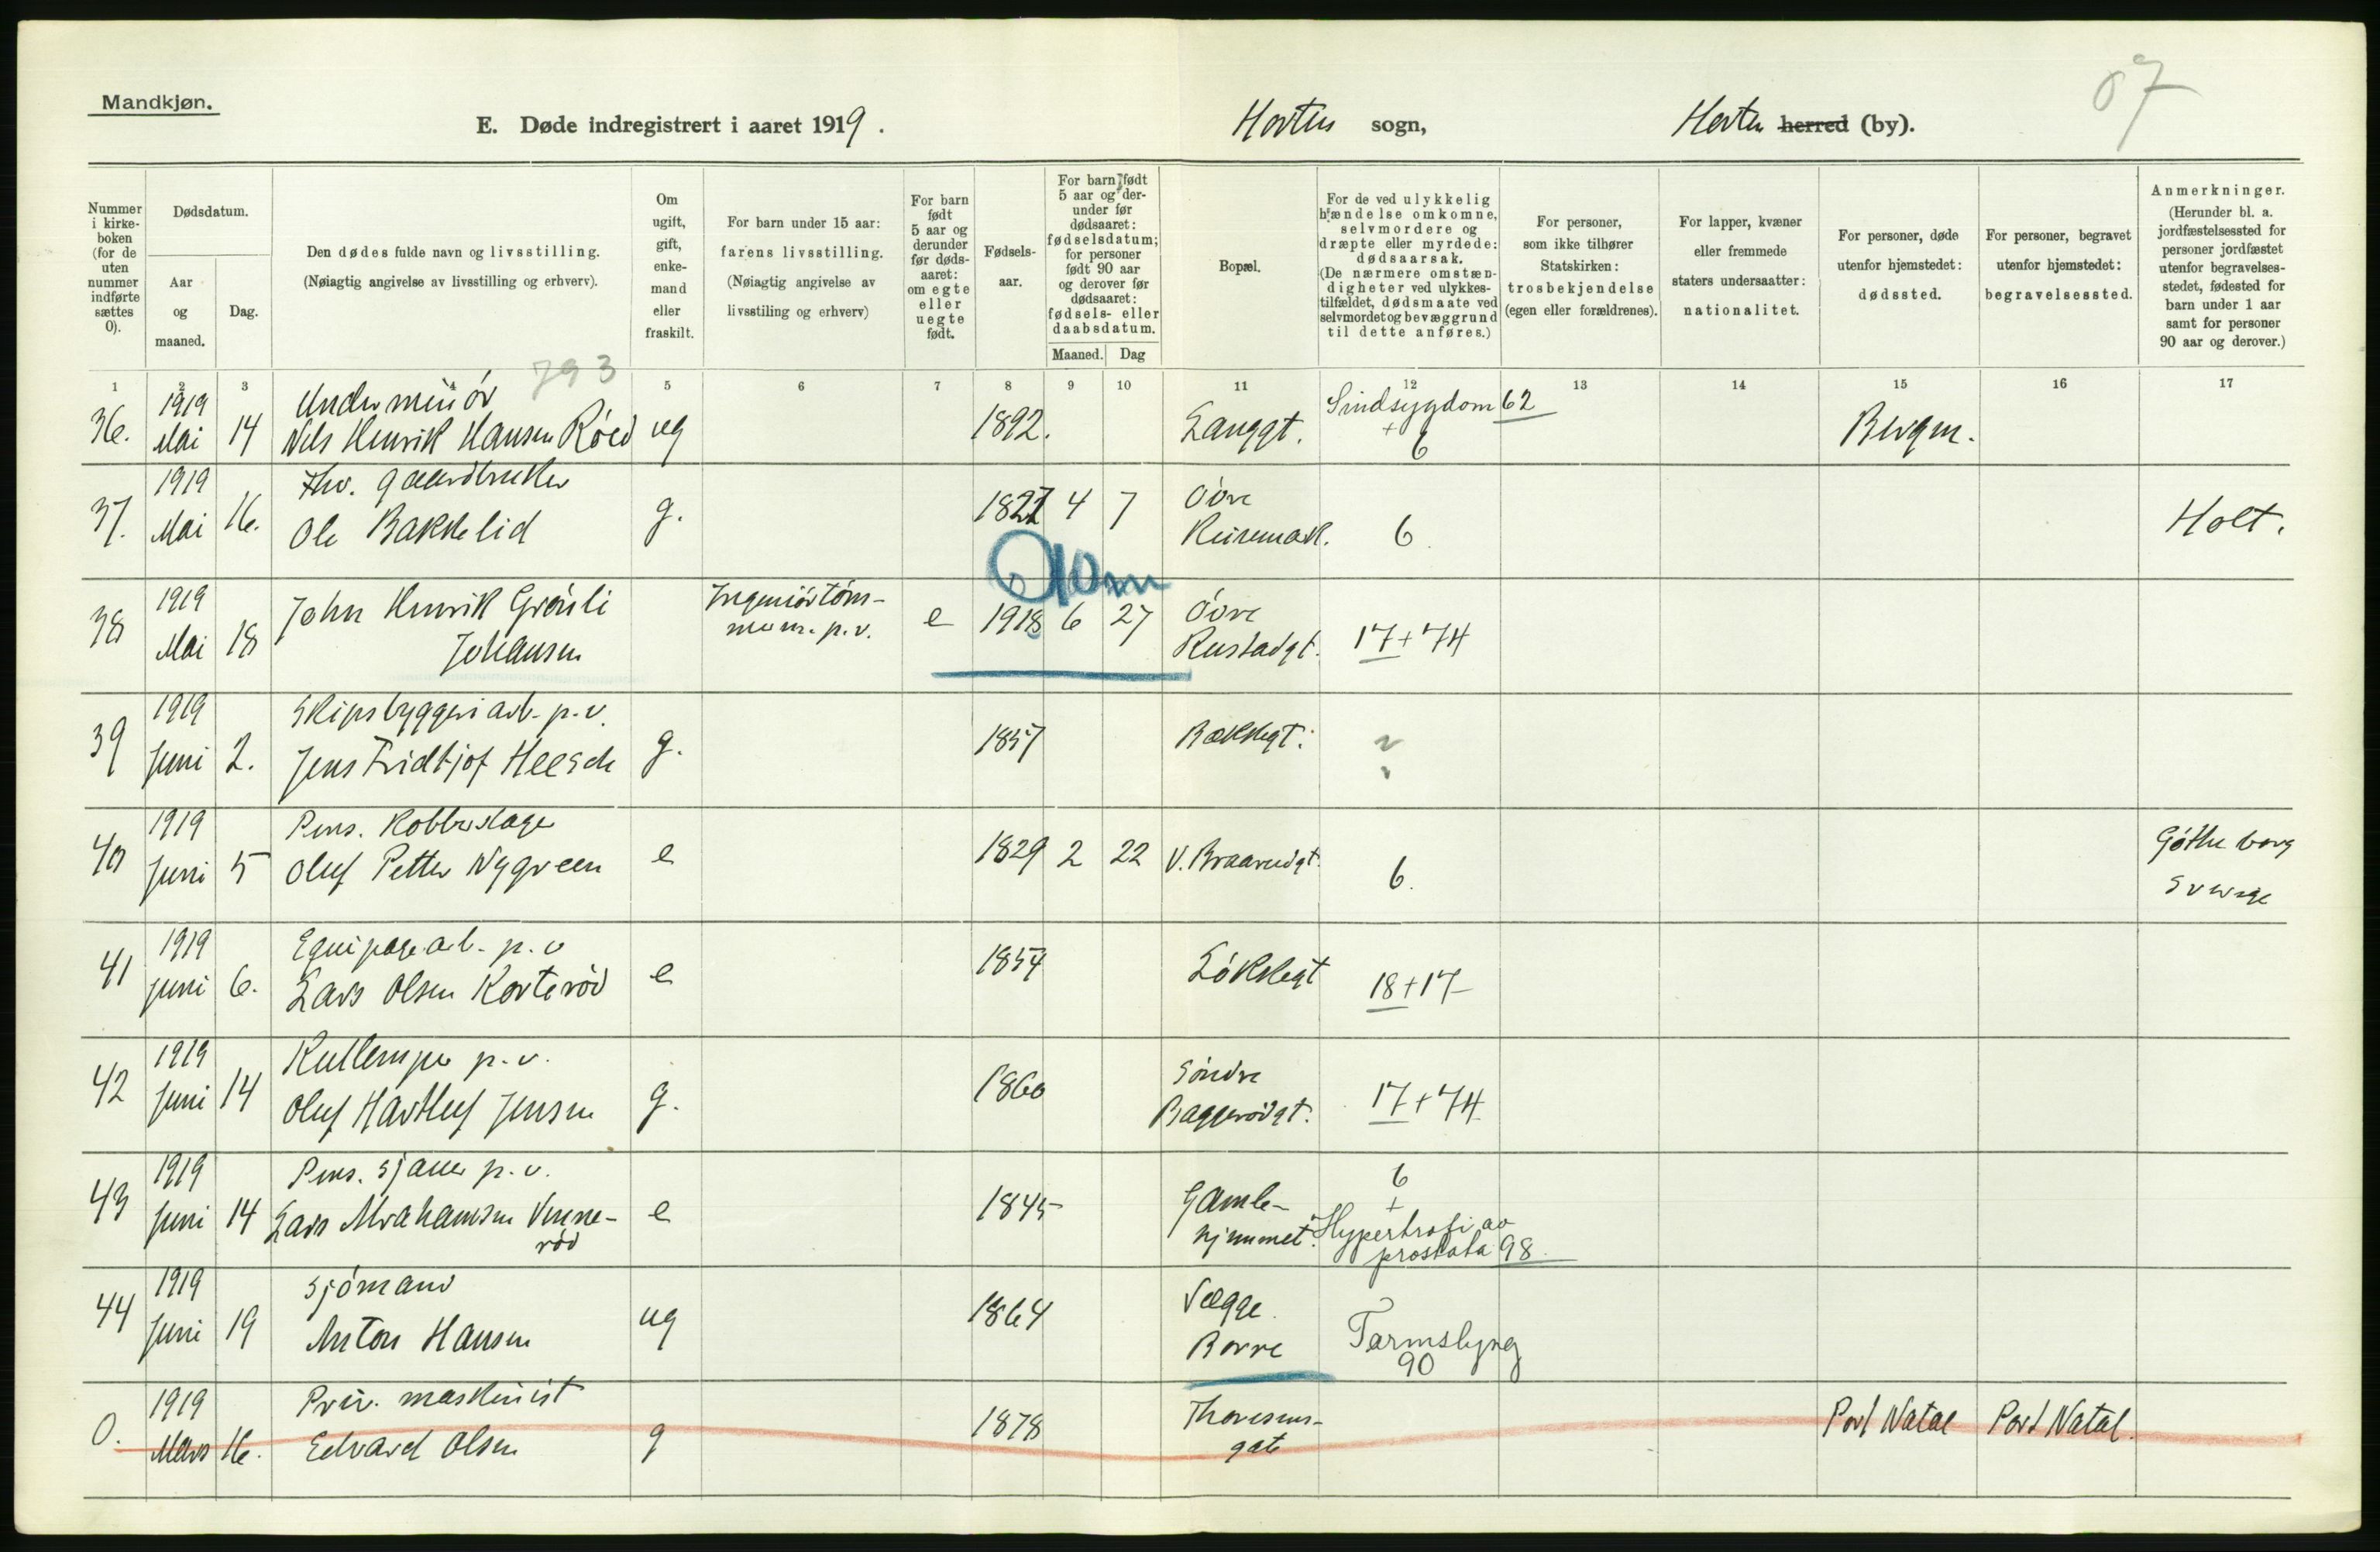 Mandkjøn.
E. Døde indregistrert i aaret 1919.
Horten sogn,
Horten herred (by).
07
Nummer i kirke-boken (for de uten nummer indførte sættes 0).
Dødsdatum.
Aar og maaned.
Dag.
Den dødes fulde navn og livsstilling.
(Nøiagtig angivelse av livsstilling og erhverv).
Om ugift, gift, enke-mand eller fraskilt.
For barn under 15 aar:
farens livsstilling.
(Nøiagtig angivelse av livsstiling og erhverv)
For barn født 5 aar og derunder før døds-aaret: om egte eller uegte født.
Fødsels-aar.
For barn født 5 aar og der-under før dødsaaret: fødselsdatum; for personer født 90 aar og derover før dødsaaret: fødsels- eller daabsdatum.
Maaned.
Dag
Bopæl.
For de ved ulykkelig hændelse omkomne, selvmordere og dræpte eller myrdede: dødsaarsak.
(De nærmere omstæn-digheter ved ulykkes-tilfældet, dødsmaate ved selvmordet og bevæggrund til dette anføres.)
For personer, som ikke tilhører Statskirken: trosbekjendelse (egen eller forældrenes).
For lapper, kvæner eller fremmede staters undersaatter: nationalitet.
For personer, døde utenfor hjemstedet: dødssted.
For personer, begravet utenfor hjemstedet: begravelsessted.
Anmerkninger.
(Herunder bl. a. jordfæstelsessted for personer jordfæstet utenfor begravelses-stedet, fødested for barn under 1 aar samt for personer 90 aar og derover.)
1 2 3 4 5 6 7 8 9 10 11 12 13 14 15 16 17
793
36. 1919 Mai 14 Underminør
Nils Henrik Hansen Röed ug 1892. Langgt. Sindsygdom 62 + 6 Bergen.
37. 1919 Mai 16. Fhv. gaardbruker
Ole Bakkelid g. 1827 4 7 Övre Keisemark. 6. Holt.
38 1919 Mai 18 John Henrik Grönli
Johansen Ingeniörtöm-
merm. p.v. e 1918 6 27 Övre Rustadgt. 17 + 74
39 1919 Juni 2. Skipsbyggeriarb. p.v.
Jens Fridtjof Heesch g. 1857 Bakkegt. ?
40 1919 Juni 5 Pens. Kobberslager
Oluf Petter Nygreen e 1829 2 22 V. Braarudgt. 6. Götheborg
Sverige
41 1919 Juni 6. Equipagearb. p.v
Lars Olsen Korteröd e 1854 Lökkegt 18 + 17
42 1919 Juni 14 Kullemper p.v.
Oluf Hartluf Jensen g. 1860 Söndre Baggerödgt. 17 + 74
43 1919 Juni 14 Pens. sjauer p.v.
Lars Abrahamsen Vinne-
röd e 1845 Gamle-
hjemmet. 6 + Hypertrofi av
prostata 98
44 1919 Juni 19 Sjömand
Anton Hansen ug 1864 Vegge
Borre Tarmslyng
90
0. 1919 Mars 16. Priv. maskinist
Edvard Olsen g 1878 Thoresens-
gate Port Natal Port Natal.